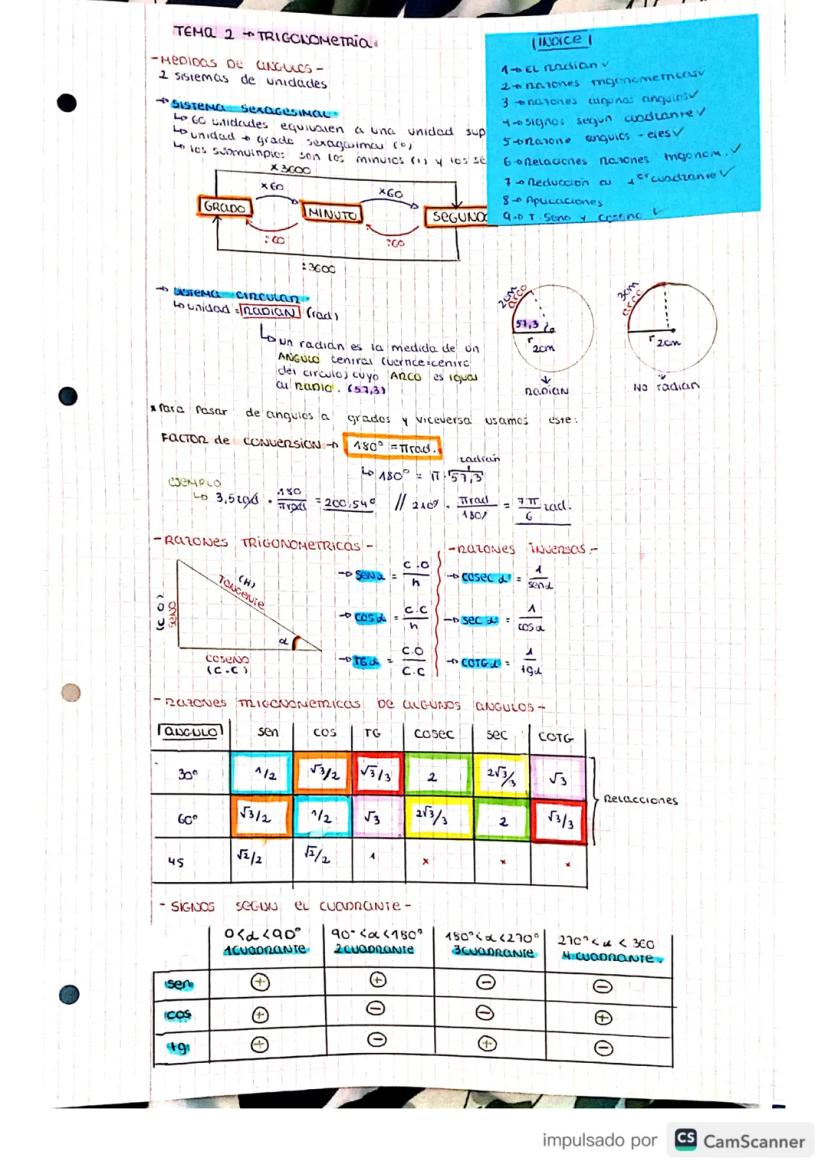 TEMA 2 → TRIGONOMETRÍA
| ÍNDICE |
1→ EL radian ✓
2→ razones trigonometricas ✓
3→ razones algunos angulos ✓
4→ signos segun cuadrante ✓
5→ razone angulos - ejes ✓
6→ relaciones razones trigonom. ✓
7→ Reducción al 1er cuadrante ✓
8→ Aplicaciones
9→ T. Seno y coseno ✓
- MEDIDAS DE ANGULOS -
2 sistemas de unidades
→ SISTEMA SEXAGESIMAL
↳ 60 unidades equivalen a una unidad sup
↳ unidad → grado sexagesimal (°)
↳ los submultiplos son los minutos (') y los se
x3600
x60 x60
GRADO MINUTO SEGUNDO
:60 :60
:3600
→ SISTEMA CIRCULAR
↳ unidad = RADIAN (rad)
↳ un radian es la medida de un
ANGULO central (vertice=centro
del circulo) cuyo ARCO es igual
al radio. (57,3)
2cm arco
57,3
r
2cm
RADIAN
3cm arco
r
2cm
NO radian
* Para pasar de angulos a grados y viceversa usamos este:
FACTOR de CONVERSION → 180° = πrad.
radian
↳ 180° = π · 57,3
EJEMPLO
↳ 3,5 rad · 180/πrad = 200,54° // 210° · πrad/180° = 7π/6 rad.
- RAZONES TRIGONOMETRICAS -
- RAZONES INVERSAS -
(H)
TANGENTE
(C.O)
SENO
α
COSENO
(C.C)
→ senα = C.O/h
→ cosα = C.C/h
→ TGα = C.O/C.C
→ cosecα = 1/senα
→ secα = 1/cosα
→ COTGα = 1/tgα
- RAZONES TRIGONOMETRICAS DE ALGUNOS ANGULOS -
ANGULO sen cos TG cosec sec COTG
30° 1/2 √3/2 √3/3 2 2√3/3 √3
60° √3/2 1/2 √3 2√3/3 2 √3/3
Relacciones
45 √2/2 √2/2 1 x x x
- SIGNOS SEGUN EL CUADRANTE -
0<α<90° 90°<α<180° 180°<α<270° 270°<α<360
1CUADRANTE 2CUADRANTE 3CUADRANTE 4 CUADRANTE.
sen + + - -
cos + - - +
tg + - + -
impulsado por CS CamScanner